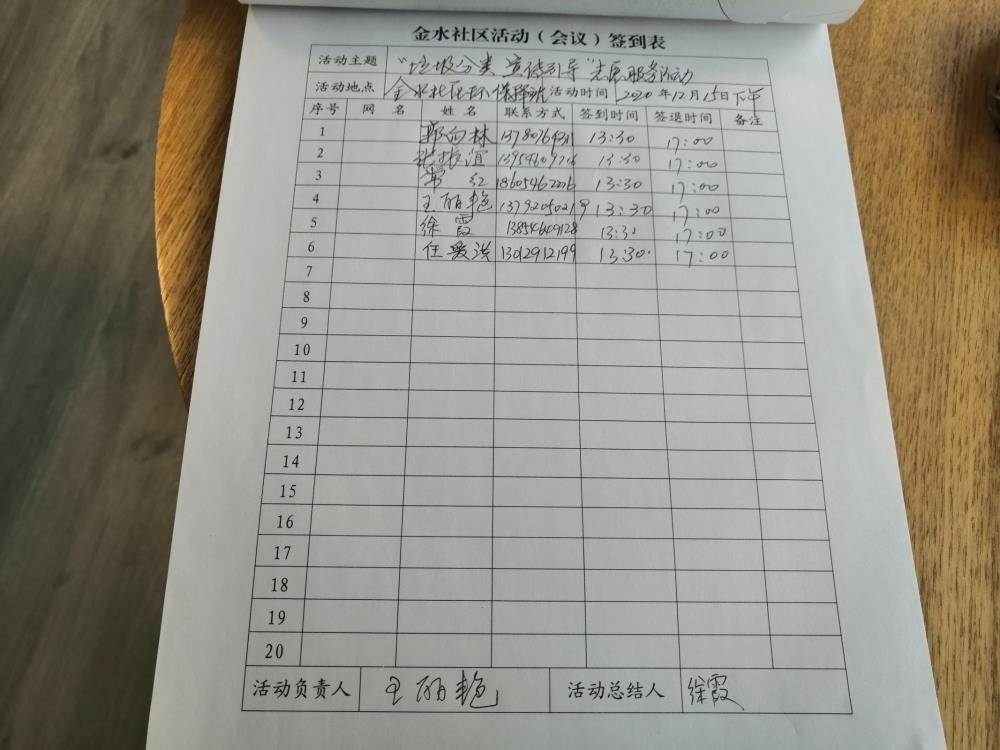 金水社区活动（会议）签到表
活动主题 “垃圾分类 宣传引导”志愿服务活动
活动地点 金水社区环保驿站 活动时间 2020年12月15日下午
序号 网名 姓名 联系方式 签到时间 签退时间 备注
1 郭向林 13:30 17:00
2 13:30 17:00
3 常红 18605462226 13:30 17:00
4 王丽艳 13:30 17:00
5 徐霞 13854649128 13:30 17:00
6 任爱洪 13012912199 13:30 17:00
7
8
9
10
11
12
13
14
15
16
17
18
19
20
活动负责人 王丽艳 活动总结人 徐霞